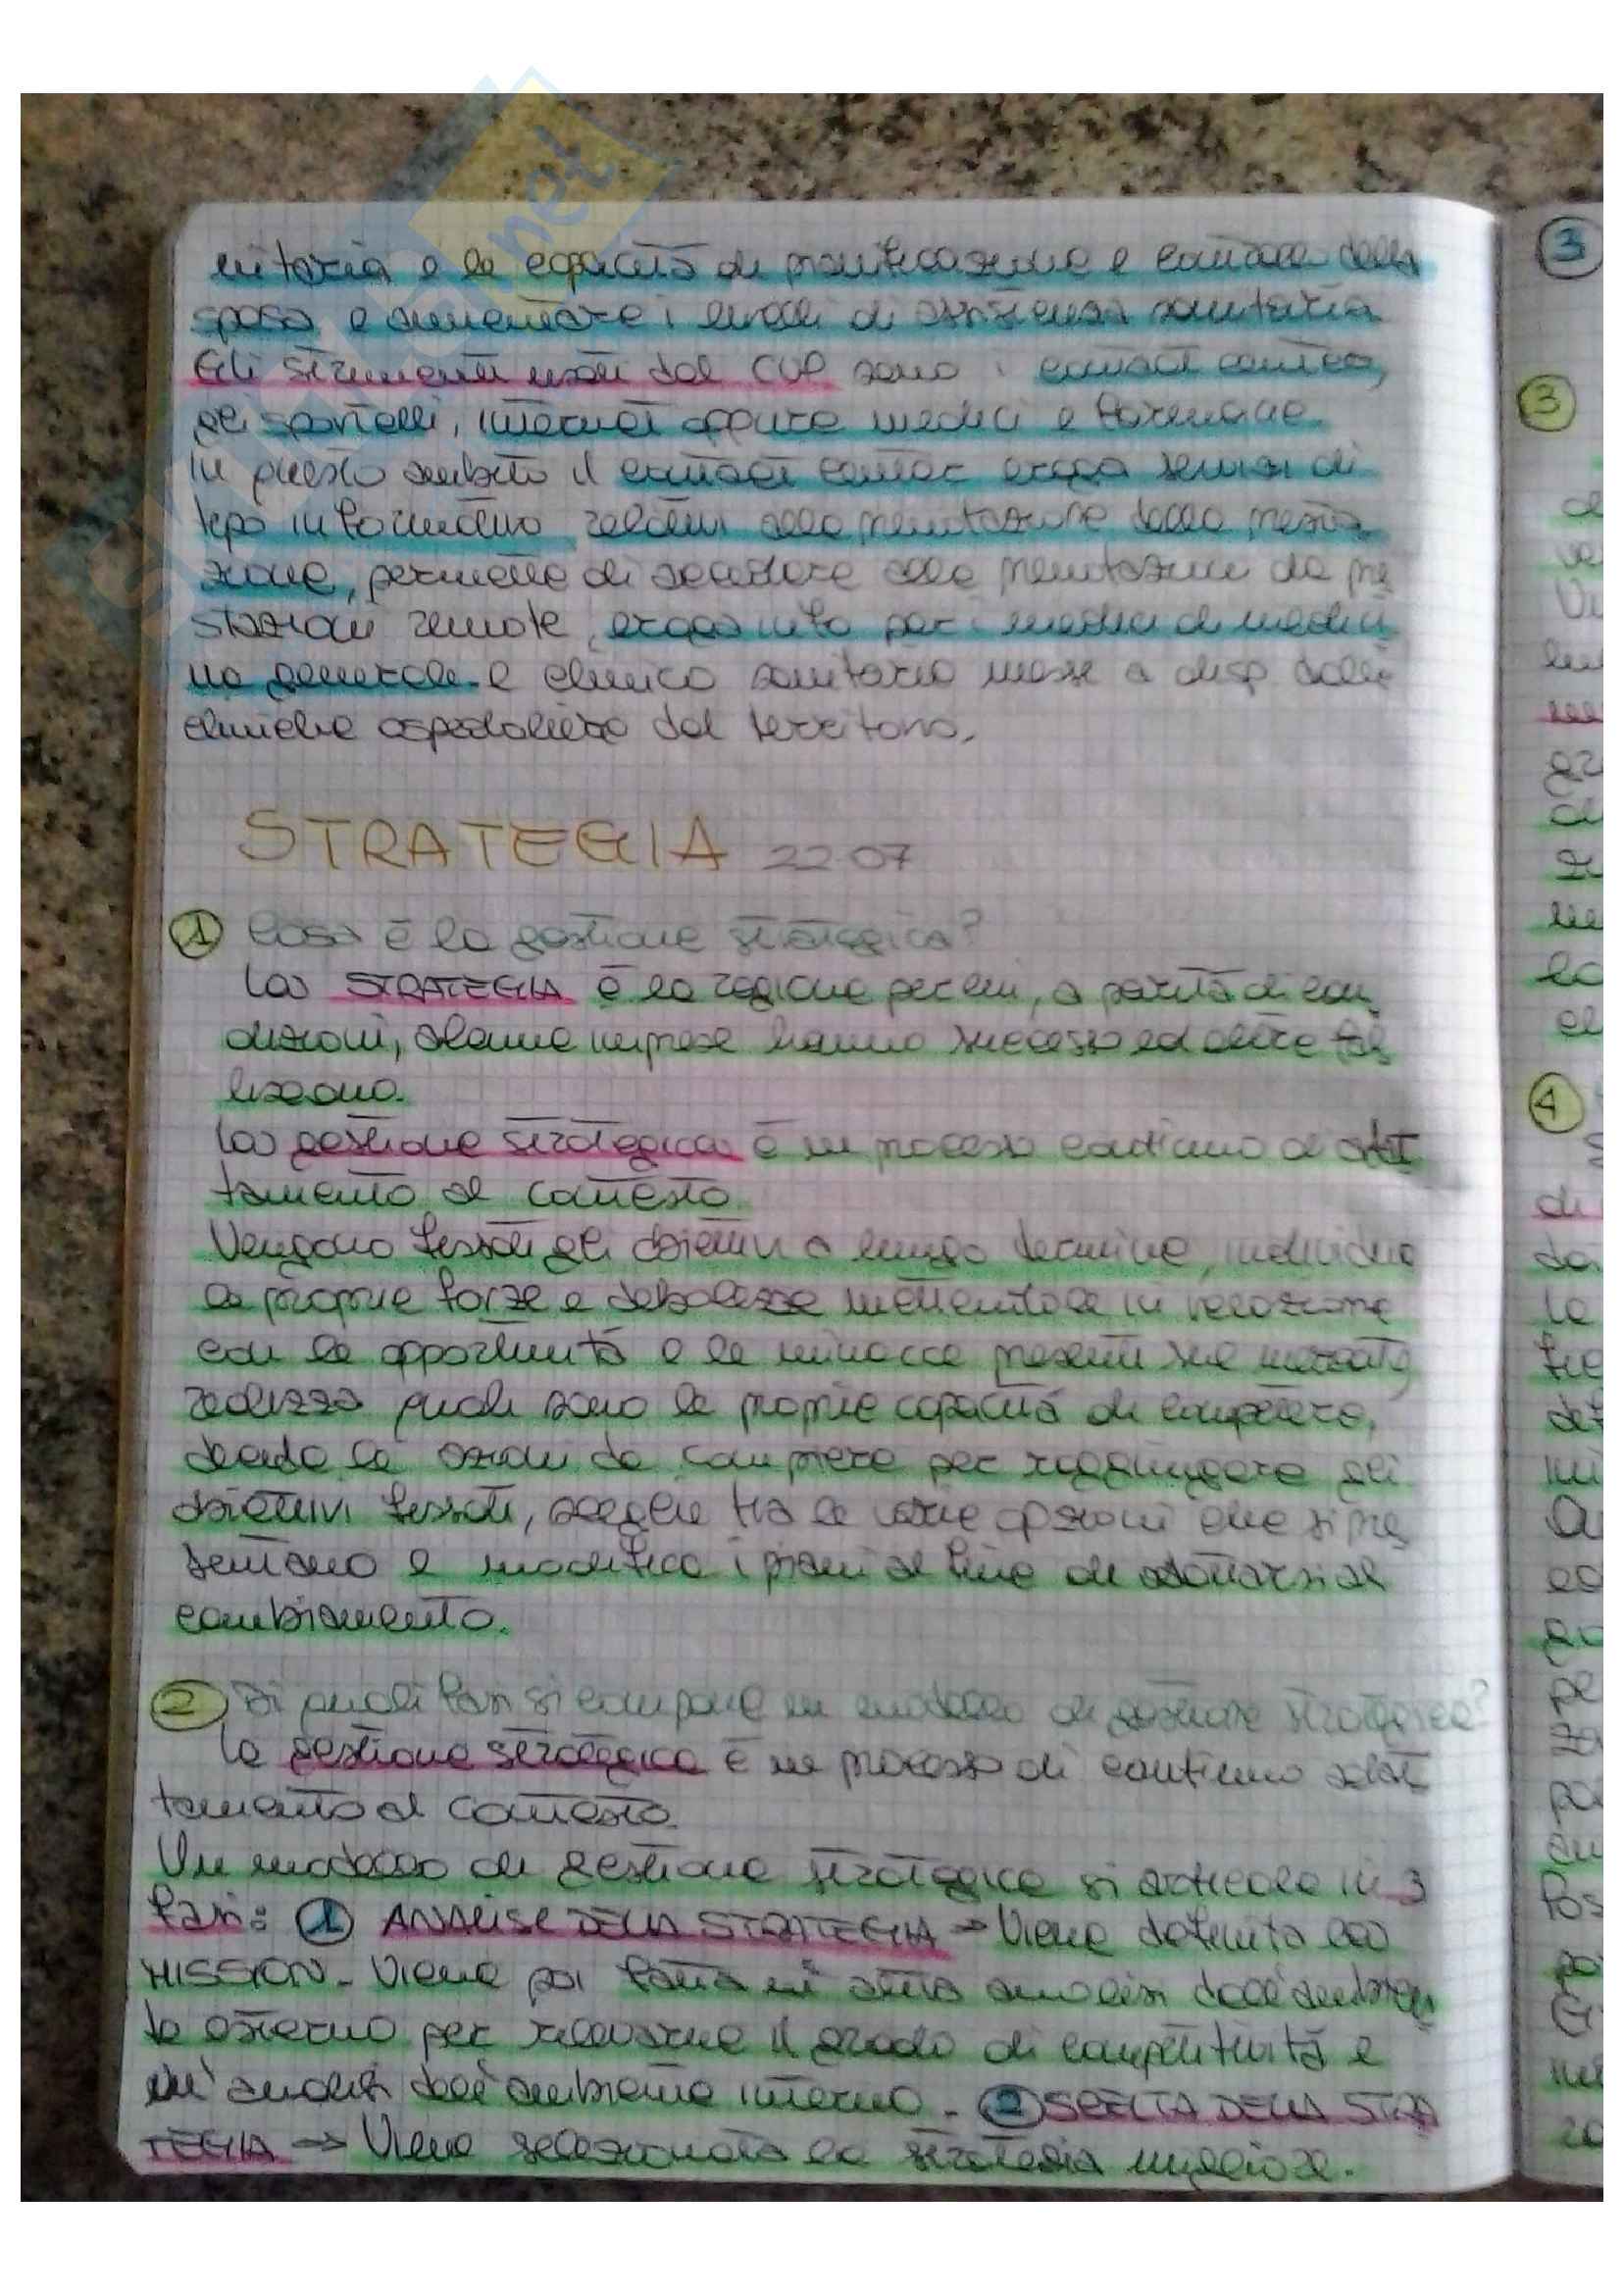 nitaria e le capacità di pianificazione e controllo della
spesa e aumentare i livelli di assistenza sanitaria
Gli strumenti usati dal CUP sono i contact center,
gli sportelli, internet oppure medici e farmacie.
In questo ambito il contact center eroga servizi di
tipo informativo relativi alla prenotazione della presta
zione, permette di accedere alle prenotazioni da pre
stazioni remote, eroga info per i medici di medici
na generale e clinico sanitario messe a disp. dalle
cliniche ospedaliere del territorio.
STRATEGIA 22-07
1 Cosa è la gestione strategica?
La STRATEGIA è la ragione per cui, a parità di con
dizioni, alcune imprese hanno successo ed altre fal
liscono.
La gestione strategica è un processo continuo di adat
tamento al contesto.
Vengono fissati gli obiettivi a lungo termine, individua
le proprie forze e debolezze mettendole in relazione
con le opportunità e le minacce presenti sul mercato,
realizza quali sono le proprie capacità di competere,
decide le azioni da compiere per raggiungere gli
obiettivi fissati, sceglie tra le varie opzioni che si pre
sentano e modifica i piani al fine di adattarsi al
cambiamento.
2 Di quali fasi si compone un modello di gestione strategica?
La gestione strategica è un processo di continuo adat
tamento al contesto.
Un modello di gestione strategica si articola in 3
fasi: 1 ANALISI DELLA STRATEGIA → Viene definita la
MISSION. Viene poi fatta un'attta analisi dell'ambien
te esterno per rilevarne il grado di competitività e
un'analisi dell'ambiente interno. 2 SCELTA DELLA STRA
TEGIA → Viene selezionata la strategia migliore.
3
3
4